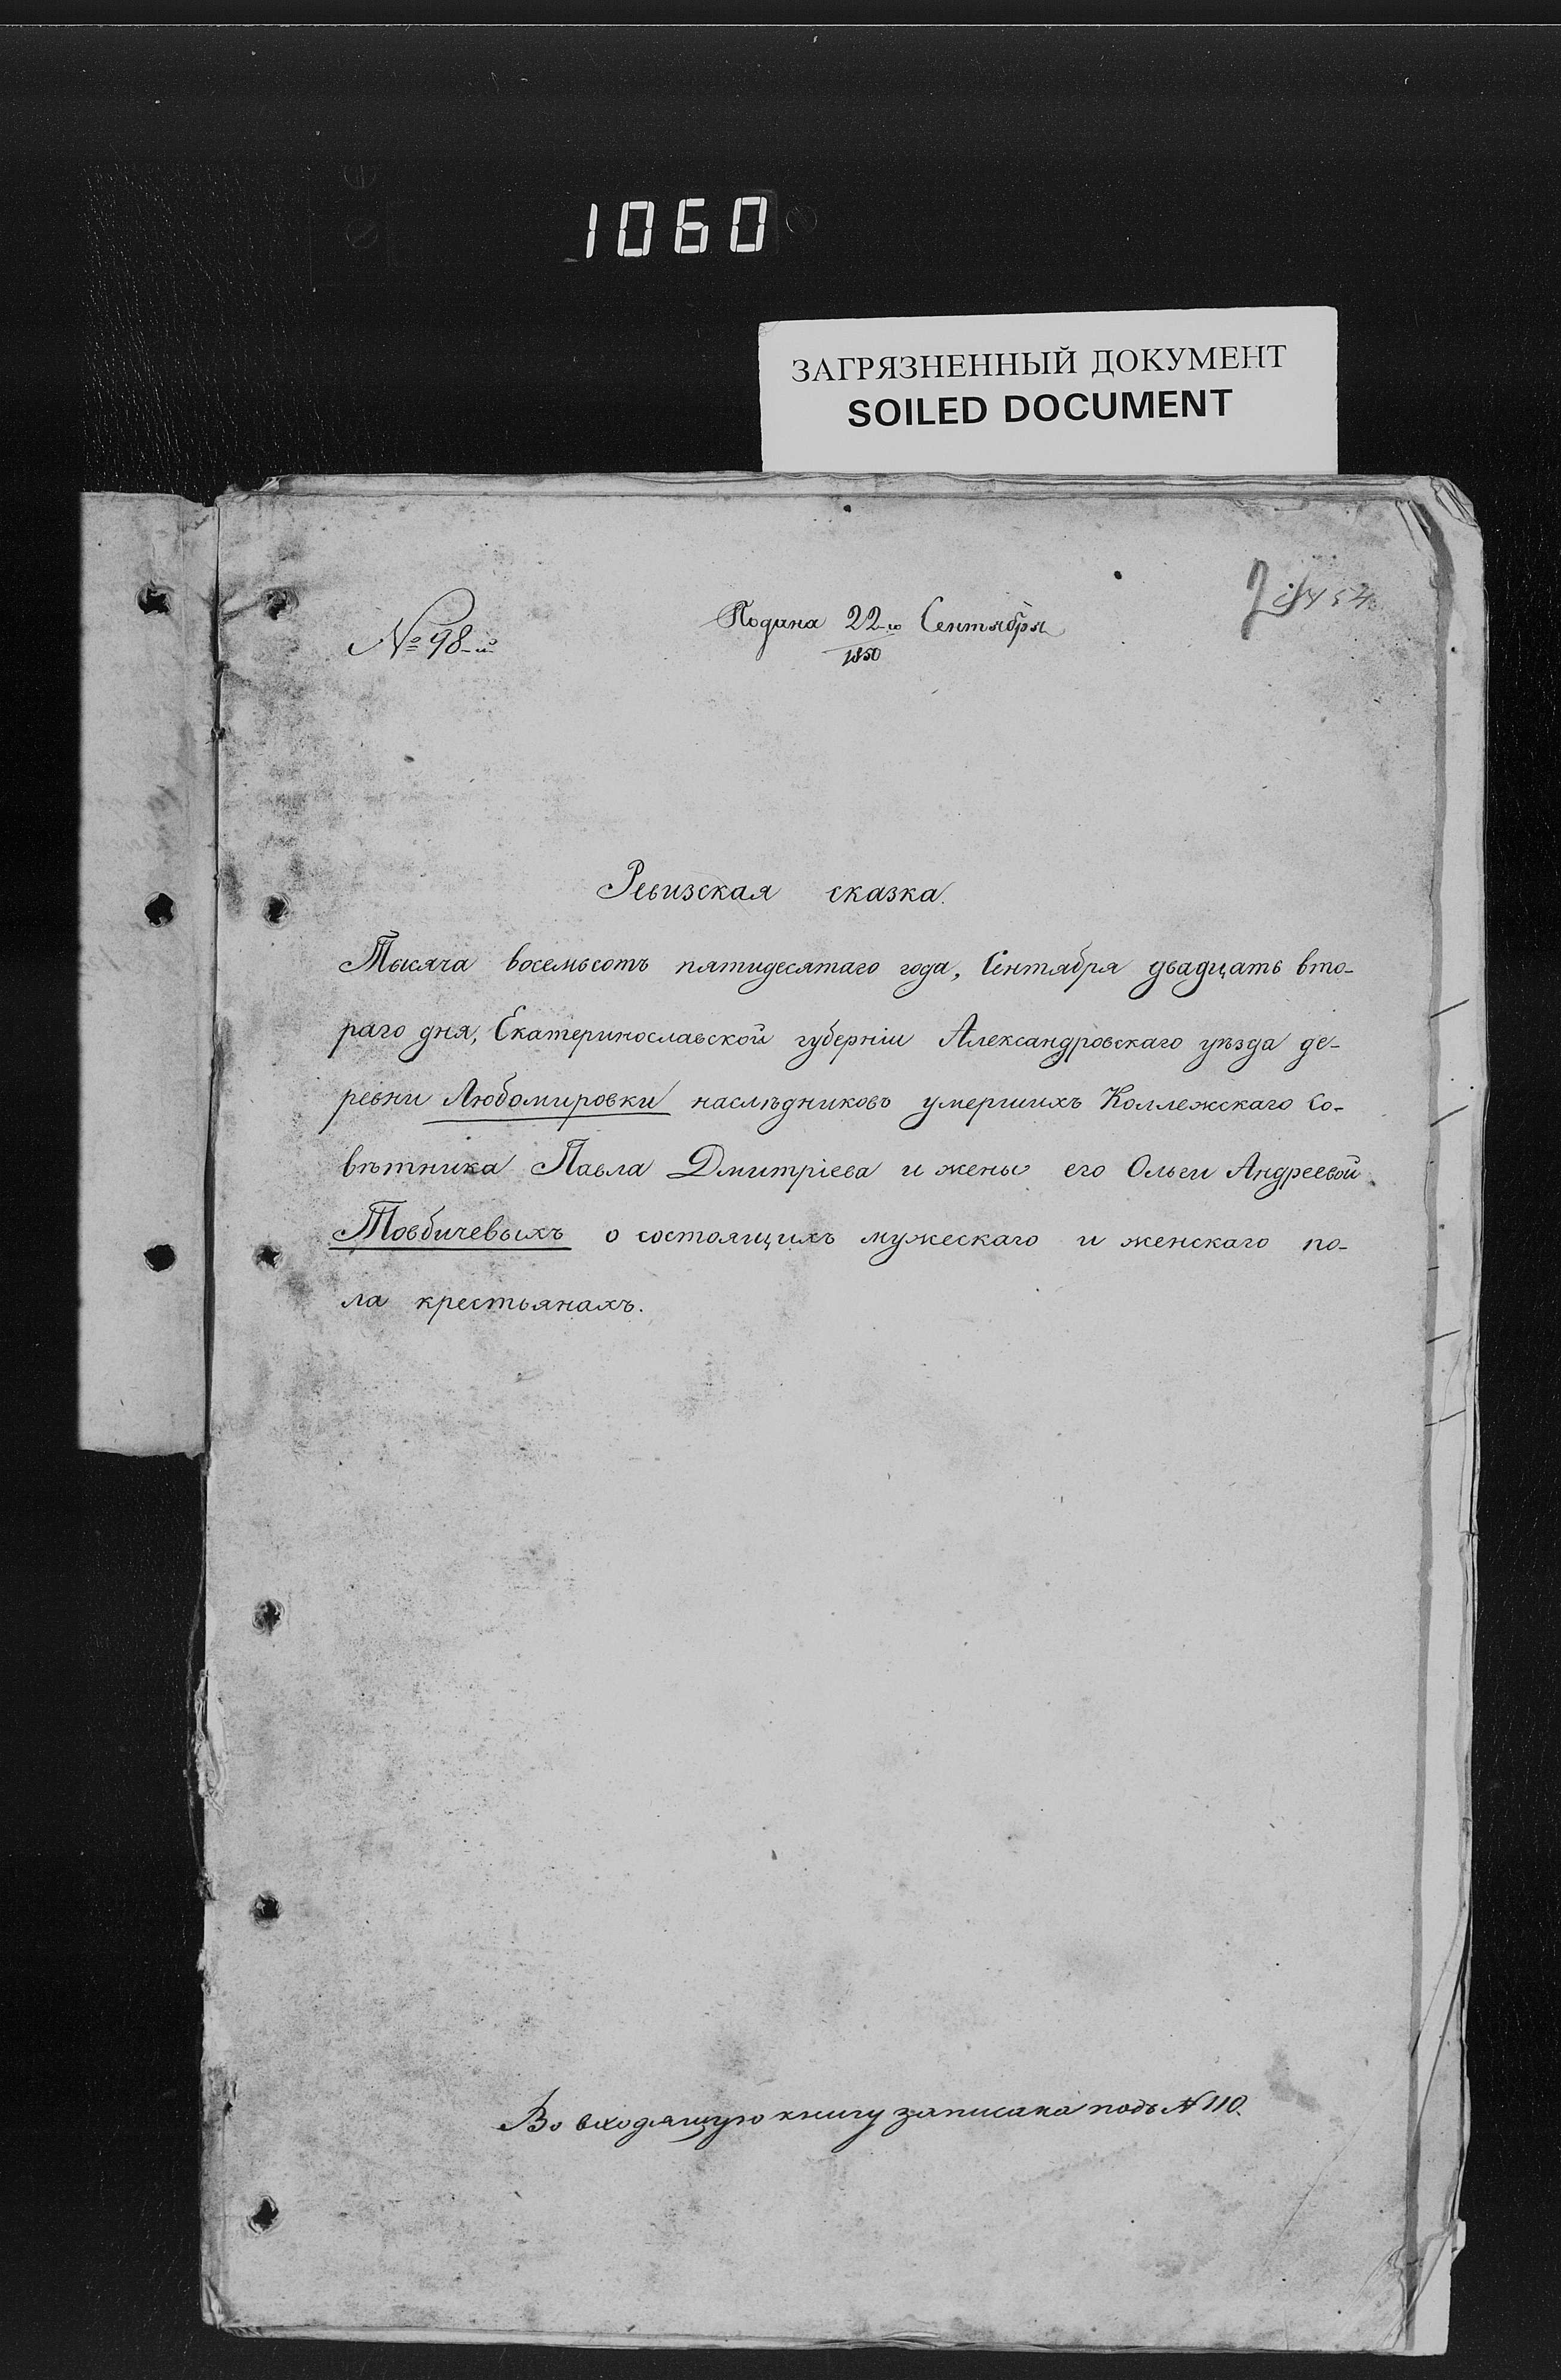 1060
ЗАГРЯЗНЕННЫЙ ДОКУМЕНТ
SOILED DOCUMENT
№ 98-й
Подана 22-го Сентября
1850
Ревизская сказка.
Тысяча восемьсотъ пятидесятаго года, Сентября двадцать вто-
раго дня, Екатеринославской губерніи Александровскаго уѣзда де-
ревни Любомировки наслѣдниковъ умершихъ Коллежскаго Со-
вѣтника Павла Дмитріева и жены его Ольги Андреевой
Товбичевыхъ о состоящихъ мужескаго и женскаго по-
ла крестьянахъ.
Во входящую книгу записана подъ № 110.